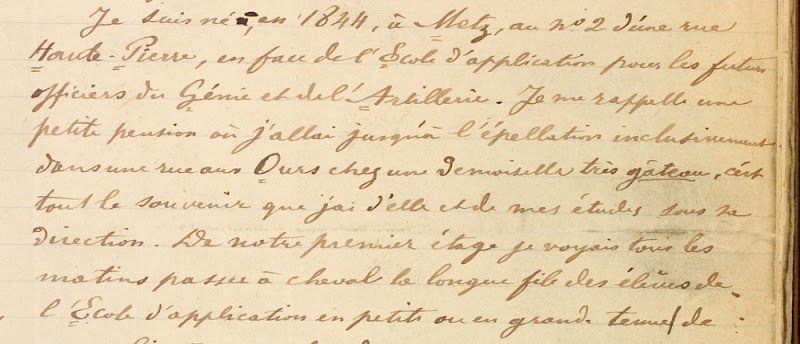 Je suis né, en 1844, à Metz, au no 2 d'une rue
Haute-Pierre, en face de l'École d'application pour les futurs
officiers du Génie et de l'Artillerie. Je me rappelle une
petite pension où j'allai jusqu'à l'épellation inclusivement
dans une rue aux Ours chez une Demoiselle très gâteau, c'est
tout le souvenir que j'ai d'elle et de mes études sous sa
direction. De notre premier étage je voyais tous les
matins passer à cheval la longue file des élèves de
l'École d'application en petite ou en grande tenue de